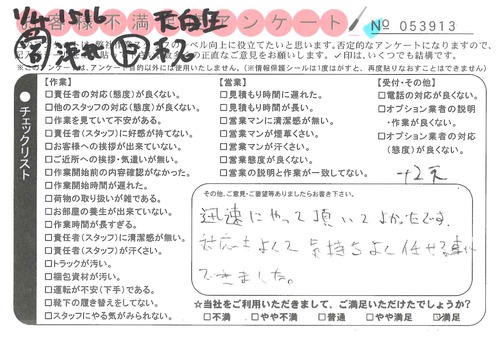 1/4 1516 天白区
お客様不満足アンケート
No 053913
営
ベル向上に役立てたいと思います。否定的なアンケートになりますので、
直なご意見をお願いします。✓印は、いくつでも結構です。
※このアンケートは、アンケート目的以外には使用いたしません。(※情報保護シールは1度はがすと、再度貼りなおすことはできません)
チェックリスト
【作業】
□責任者の対応(態度)が良くない。
□他のスタッフの対応(態度)が良くない。
□作業を見ていて不安がある。
□責任者(スタッフ)に好感が持てない。
□お客様への挨拶が出来ていない。
□ご近所への挨拶・気遣いが無い。
□作業開始前の内容確認がなかった。
□作業開始時間が遅れた。
□荷物の取り扱いが雑である。
□お部屋の養生が出来ていない。
□作業時間が長すぎる。
□責任者(スタッフ)に清潔感が無い。
□責任者(スタッフ)が汗くさい。
□トラックが汚い。
□梱包資材が汚い。
□運転が不安(下手)である。
□靴下の履き替えをしてない。
□スタッフにやる気がみられない。
【営業】
□見積もり時間に遅れた。
□見積もり時間が長い。
□営業マンに清潔感が無い。
□営業マンが煙草くさい。
□営業マンが汗くさい。
□営業態度が良くない。
□営業の説明と作業が一致してない。
【受付・その他】
□電話の対応が良くない。
□オプション業者の説明
・作業が良くない。
□オプション業者の対応
(態度)が良くない。
その他、ご意見・ご要望等ありましたらお書き下さい。
迅速にやって頂いてよかったです。
対応もよくて気持ちよく任せる事が
できました。
☆当社をご利用いただきまして、ご満足いただけたでしょうか?
□不満 □やや不満 □普通 □やや満足 □満足